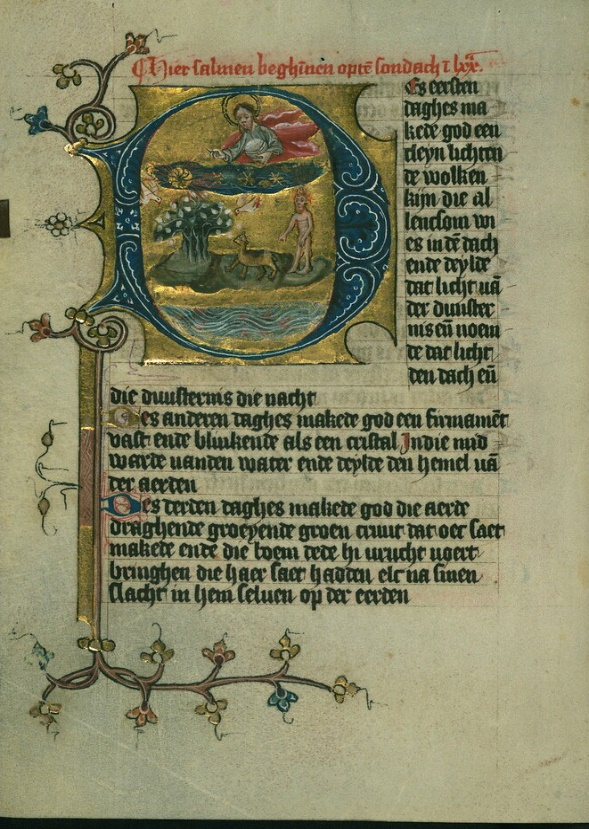 Hier salmen beghīnen optē sondach ī lxx.
Es eersten
daghes ma
kede god een
cleyn lichten
de wolken
kijn die al
lencsom vvi
es in dē dach
ende deylde
dat licht vā
der duuster
nis eñ noem
de dat licht
den dach eñ
die duusternis die nacht
Des anderen daghes makede god een firmamēt
vast ende blinkende als een cristal Indie mid
warde vanden water ende deylde den hemel vā
der aerden
Des derden daghes makede god die aerde
draghende groeyende groen cruut dat oec saet
makede ende die boem dede hi vrucht voert
bringhen die haer saet hadden elc na sinen
slacht in hem seluen op der eerden